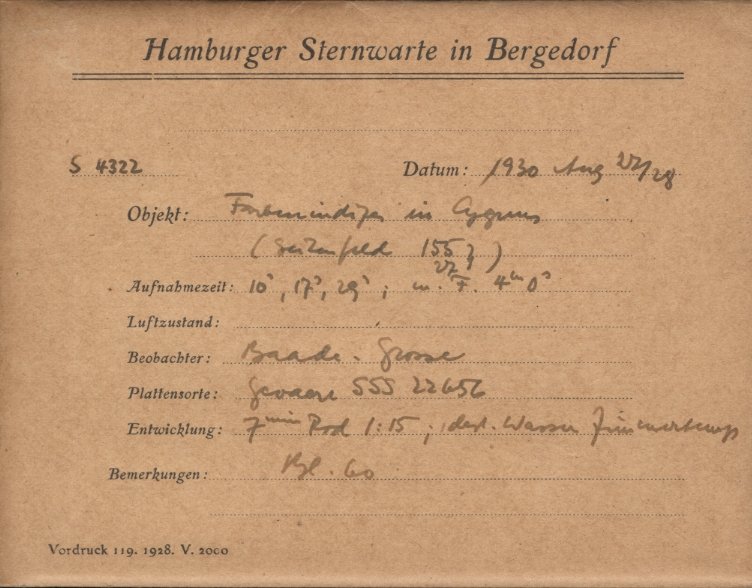 Hamburger Sternwarte in Bergedorf
S 4322 Datum: 1930 Aug 27/28
Objekt: Farbenindizes in Cygnus
( 155
27
Aufnahmezeit: 10ˢ, 17ˢ, 29ˢ; m. F. 4ᵐ 0ˢ
Luftzustand:
Beobachter: Baade - Grosse
Plattensorte: Gevaert SSS 22656
Entwicklung: 7ᵐⁱⁿ Rod 1:15; dest. Wasser Zimmertemp
Bemerkungen: Bl. 60
Vordruck 119. 1928. V. 2000